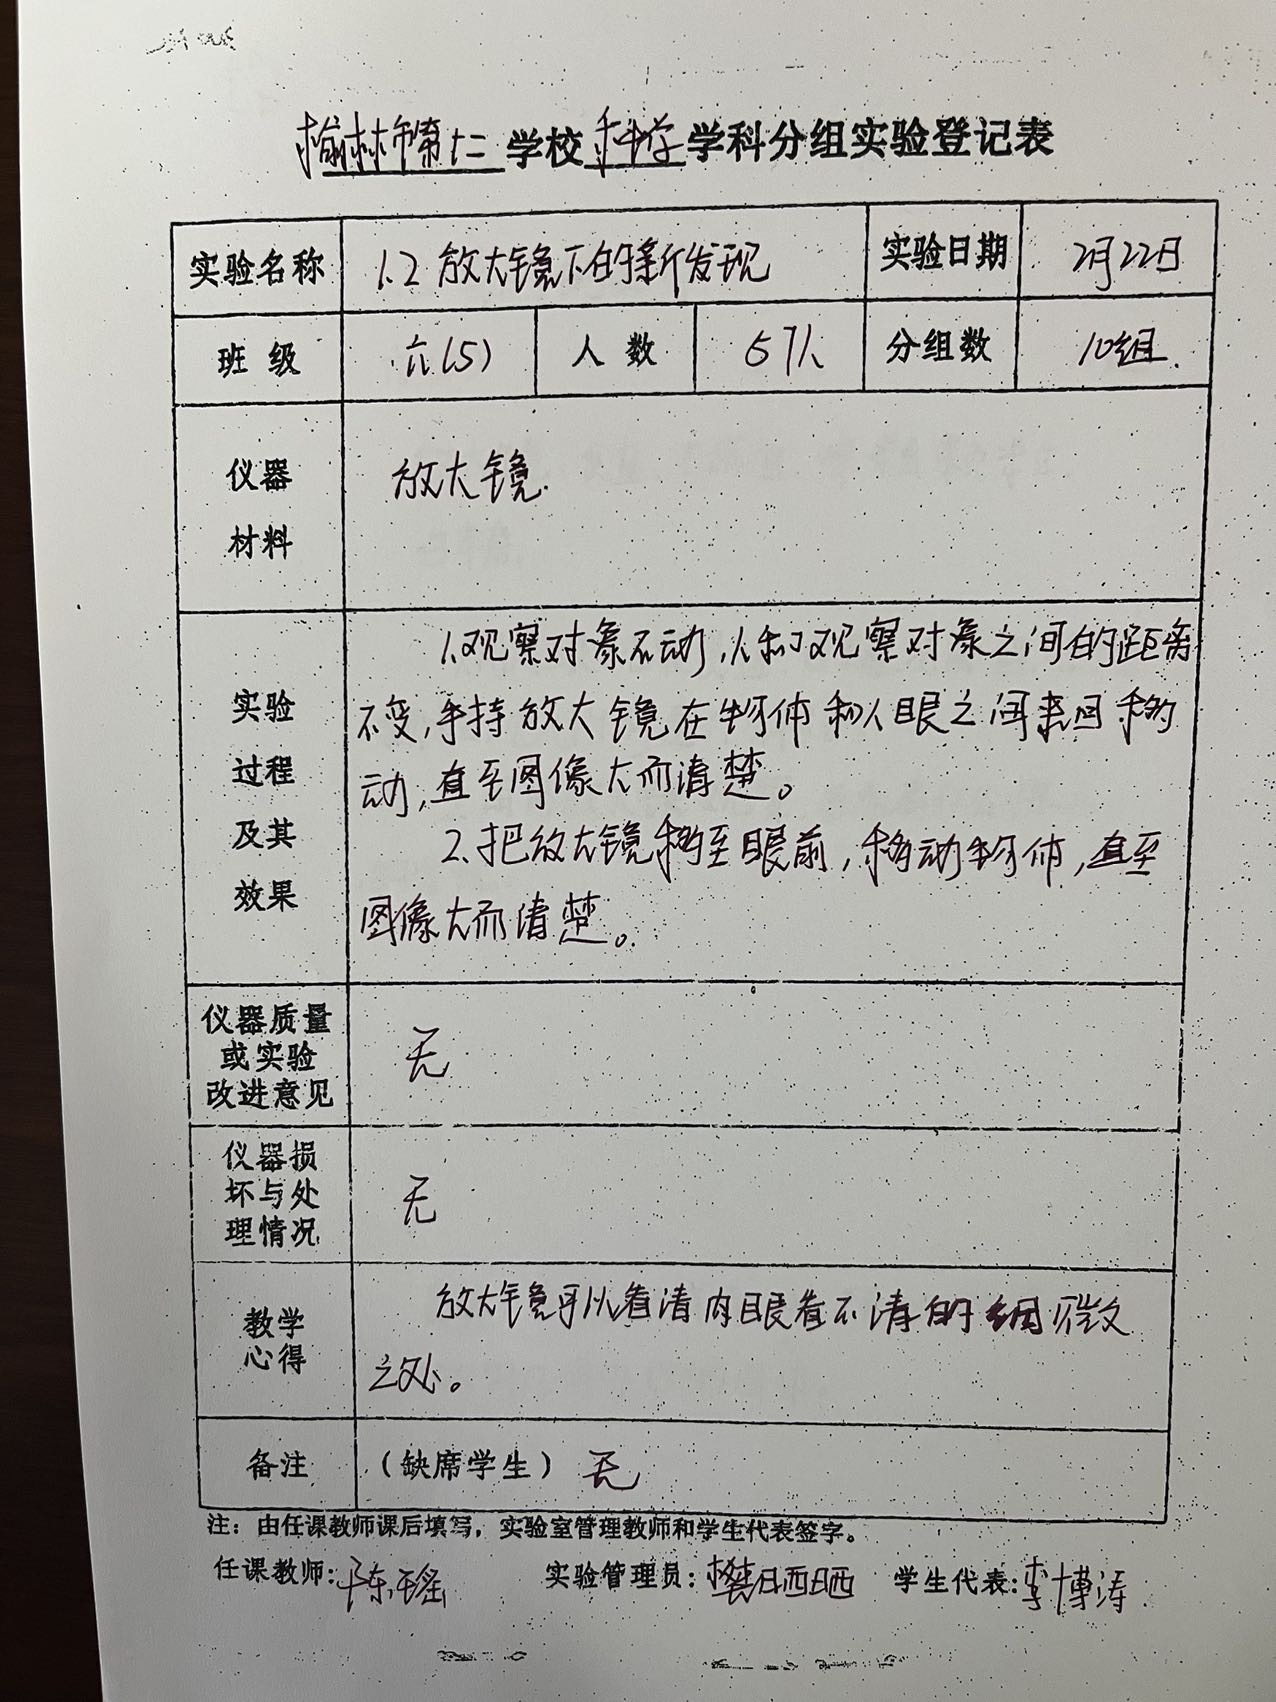 榆林市第十二学校科学学科分组实验登记表
实验名称 1.2 放大镜下的新发现 实验日期 2月22日
班级 六(5) 人数 57人 分组数 10组
仪器
材料
放大镜.
实验
过程
及其
效果
1.观察对象不动,人和观察对象之间的距离
不变,手持放大镜在物体和人眼之间来回移
动,直至图像大而清楚。
2.把放大镜移至眼前,移动物体,直至
图像大而清楚。
仪器质量
或实验
改进意见
无
仪器损
坏与处
理情况
无
教学
心得
放大镜可以看清肉眼看不清的细微
之处。
备注 (缺席学生) 无
注:由任课教师课后填写,实验室管理教师和学生代表签字。
任课教师:陈瑶 实验管理员:樊晒晒 学生代表:李博涛